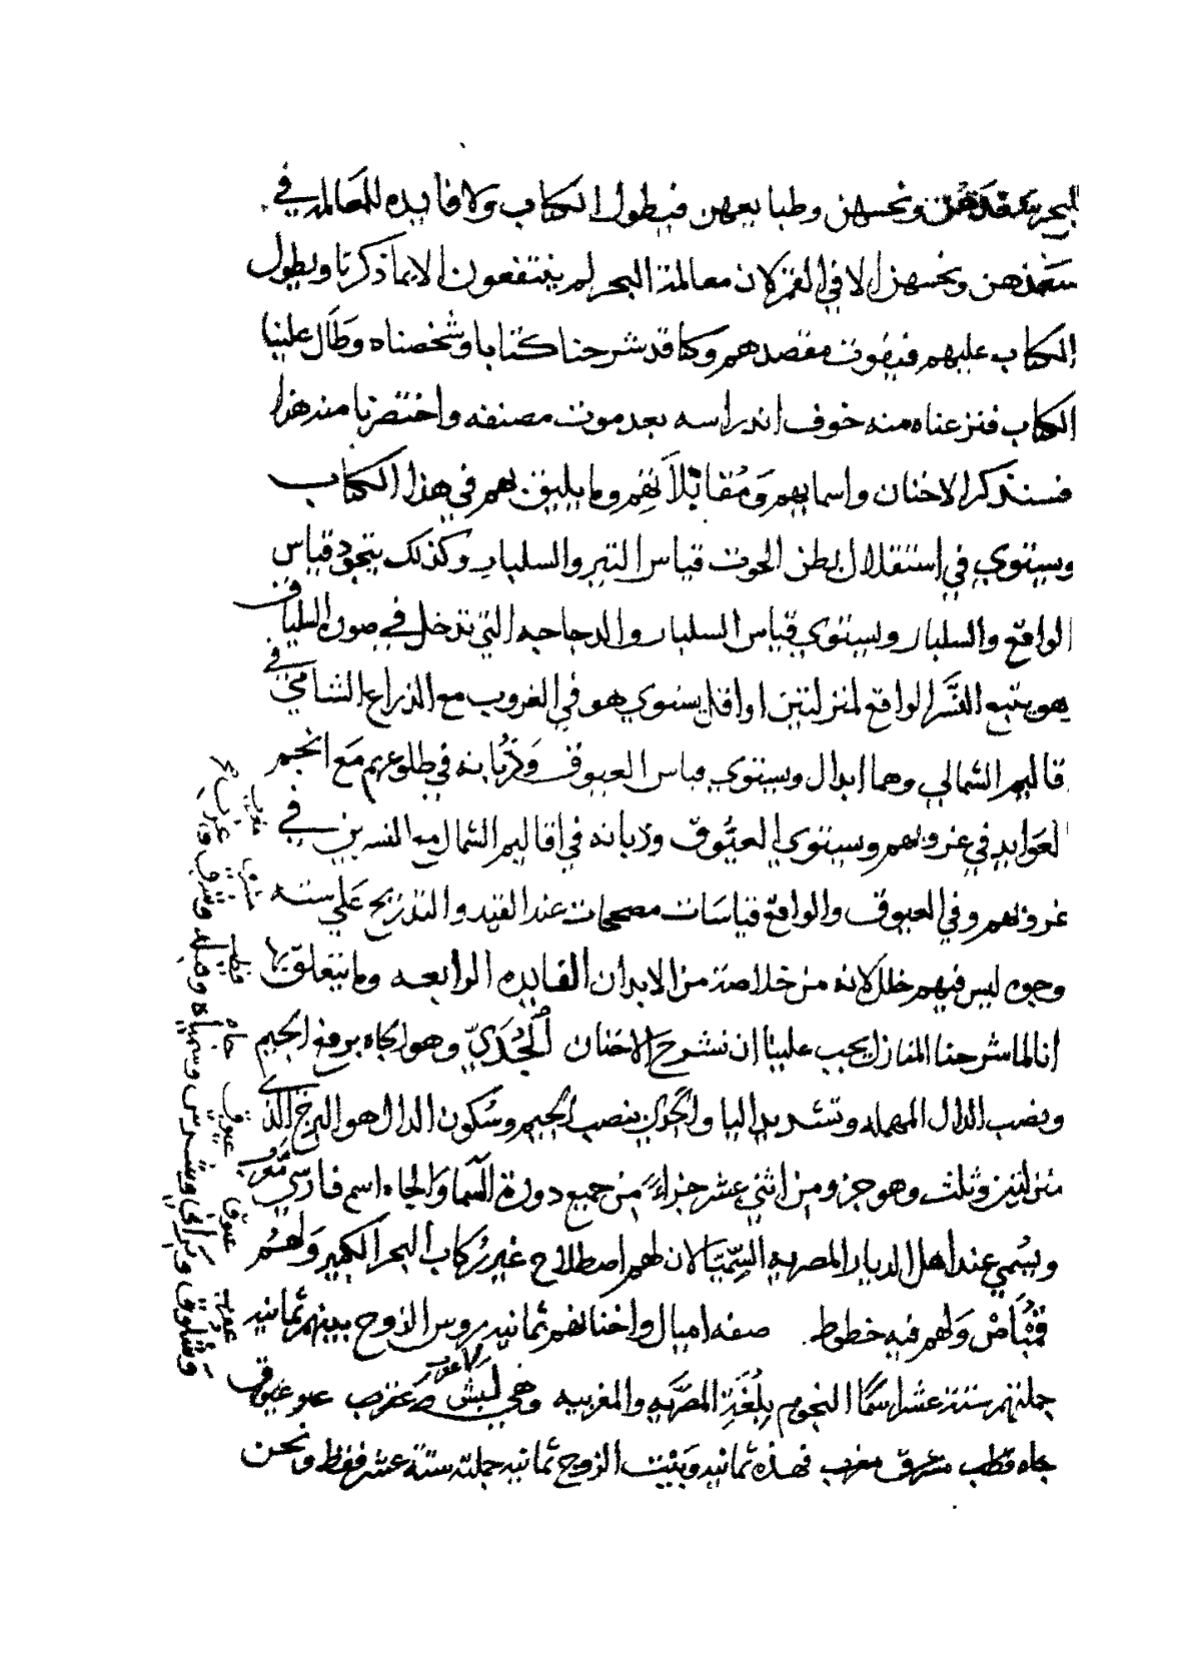 البحر سعدهن ونحسهن وطبايعهن فيطول الكتاب ولا فايده للمعالمة في
سعدهن ونحسهن الا في القمر لان معالمة البحر لم ينتفعون الا بما ذكرنا ويطول
الكتاب عليهم فيفوت مقصدهم وكنا قد شرحنا كتابا وشخصناه وطال علينا
الكتاب فنزعناه منه خوف اندراسه بعد موت مصنفه واختصرنا منه هذا
فسنذكر الاخنان واسمايهم ومقابلاتهم وما يليق بهم في هذا الكتاب
ويستوي في استقلال بطن الحوت قياس التير والسلبار وكذلك يتجود قياس
الواقع والسلبار ويستوي قياس السلبار والدجاجه التي تدخل في صون السلباق
هو يتبع النسر الواقع لمنزلتين او اقل يستوي هو في الغروب مع الذراع الشامي في
قاليم الشمالي وهما ابدال ويستوي قياس العيوق وذبانه في طلوعهم مع انجم
العوايد في غروبهم ويستوي العيوق وذبانه في اقاليم الشمال مع النسرين في
غروبهم وفي العيوق والواقع قياسات مصححات عند القيد والتدريج على سته
وجوه ليس فيهم خلل لانه من خلاصة من الابدان الفايده الرابعه وما يتعلق بها
انا لما شرحنا المنازل يجب علينا ان نشرح الاخنان الجدي وهو الجاه برفع الجيم
ونصب الدال المهمله وتشديد اليا والجدي بنصب الجيم وسكون الدال هو البرج الذي
منزلتين وثلث وهو جزو من اثني عشر جزاء من جميع دورة السما والجاه اسم فارسي معرب
ويسمي عند اهل الديار المصريه السميا لان لهم اصطلاح غير ركاب البحر الكبير ولهم
قنباص ولهم فيه خطوط صفه اميال واخنانهم ثمانيه روس الزوج بينهم ثمانيه
جملتهم ستة عشر اسما النجوم بلغة المصريه والمغربيه وهي لبش عقرب عيوق
جاه قطب مشرق مغرب فهذه ثمانيه وبنيت الزوج ثمانيه جملته ستة عشر فقط ونحن
مغرب مشرق قطب جاه عيوق عيوق عقرب